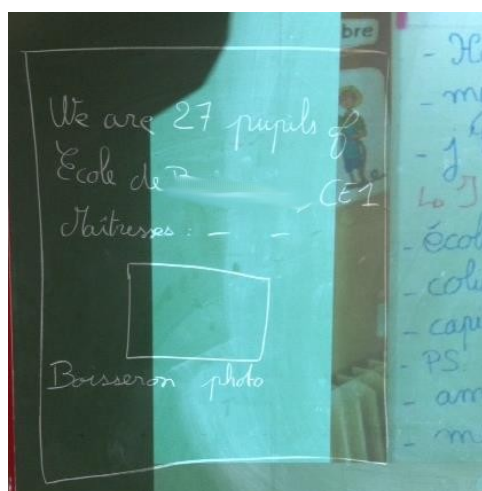 We are 27 pupils of
Ecole de
, CE1
Maîtresses : - -
Boisseron photo
bre
- m
- j
- écol
- coli
- capi
- PS.
- am
- m